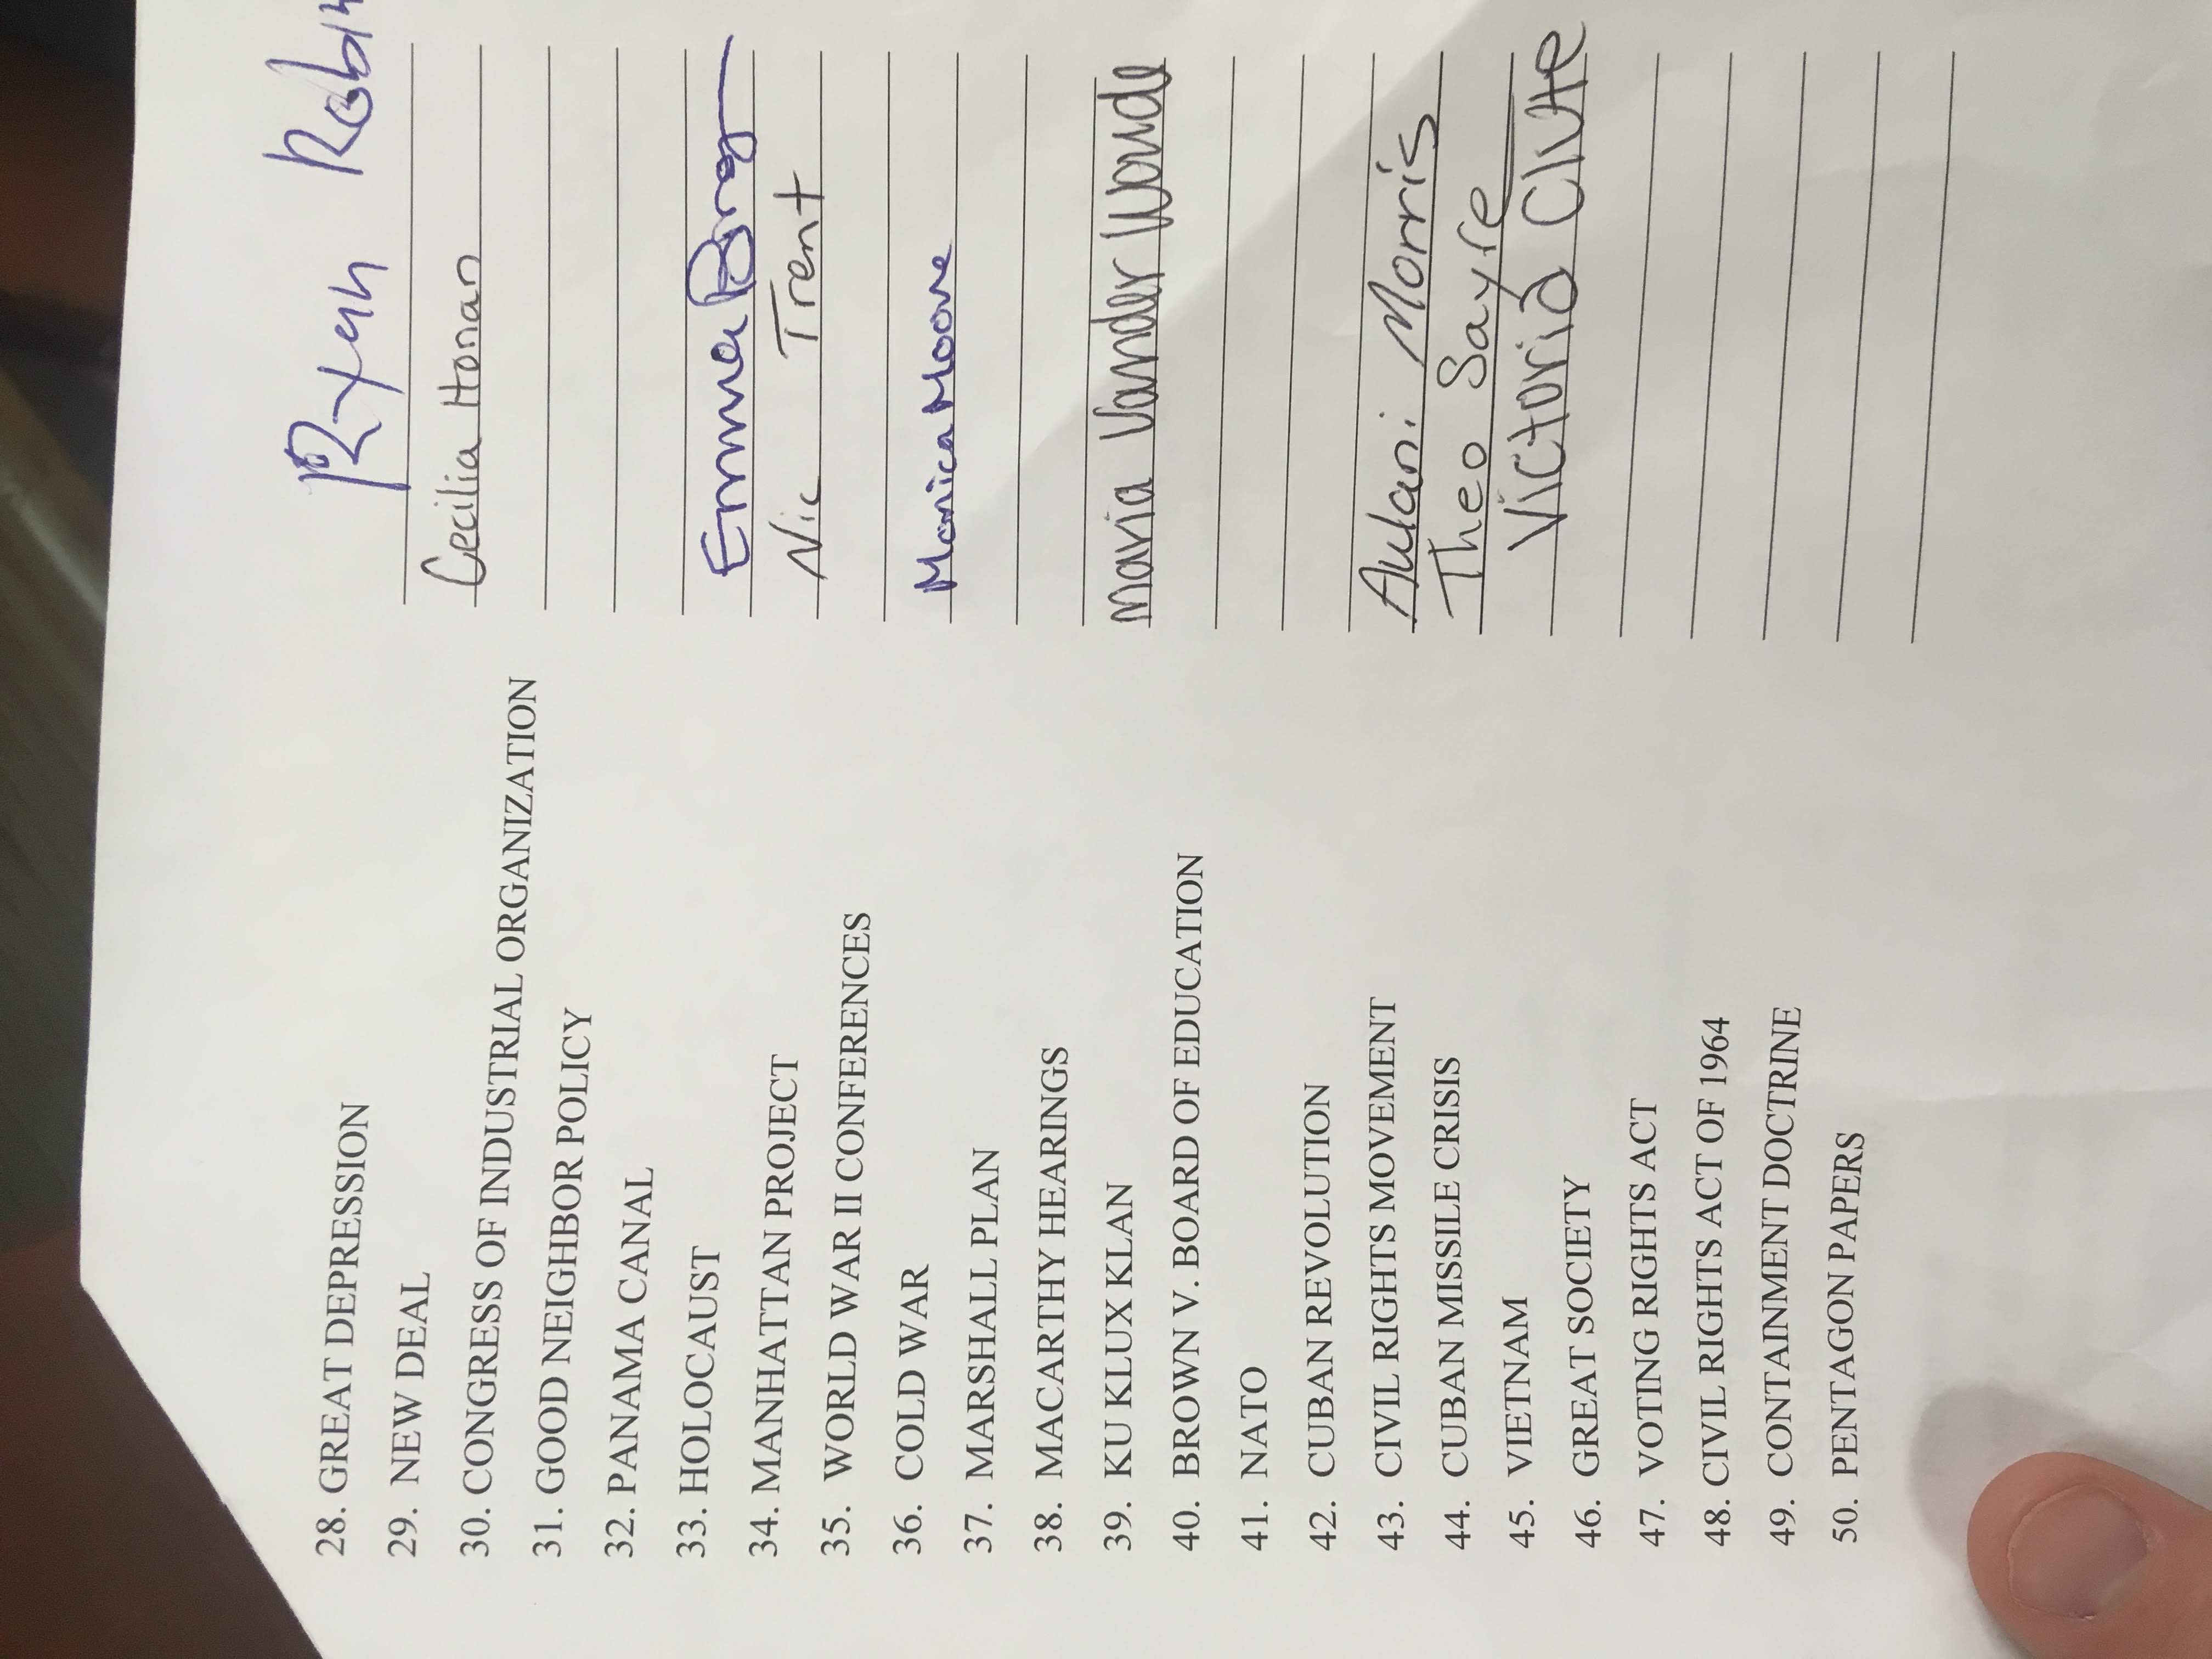 28. GREAT DEPRESSION Ryan
29. NEW DEAL Cecilia Honan
30. CONGRESS OF INDUSTRIAL ORGANIZATION
31. GOOD NEIGHBOR POLICY
32. PANAMA CANAL
33. HOLOCAUST Emma
34. MANHATTAN PROJECT Nic Trent
35. WORLD WAR II CONFERENCES
36. COLD WAR Monica Moore
37. MARSHALL PLAN
38. MACARTHY HEARINGS
39. KU KLUX KLAN Maria Vander Woude
40. BROWN V. BOARD OF EDUCATION
41. NATO
42. CUBAN REVOLUTION
43. CIVIL RIGHTS MOVEMENT Aulani Morris
44. CUBAN MISSILE CRISIS Theo Sayre
45. VIETNAM Victoria Clute
46. GREAT SOCIETY
47. VOTING RIGHTS ACT
48. CIVIL RIGHTS ACT OF 1964
49. CONTAINMENT DOCTRINE
50. PENTAGON PAPERS